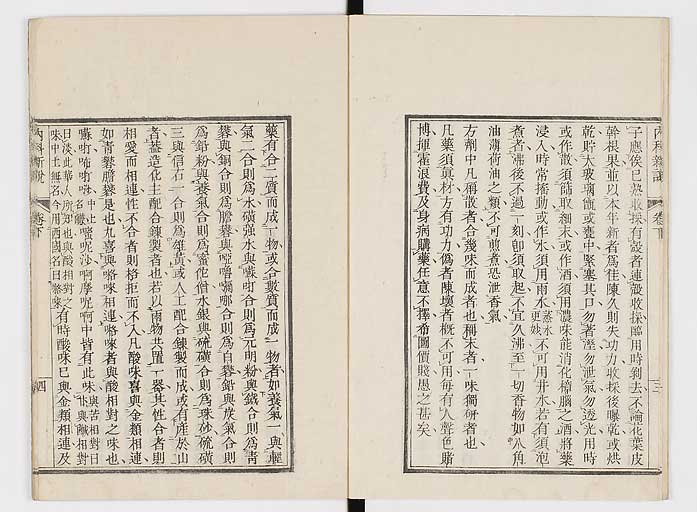 內科新說
卷下
子應俟已熟收採有殼者連殼收採臨用時剝去不論花葉皮
幹根果並以本年新者爲佳陳久則失功力收採後曝乾或烘
乾貯大玻璃瓶或甕中緊塞其口勿著溼勿泄氣勿透光用時
或作散須篩取細末或作酒須用濃味能消化樟腦之酒將藥
浸入時常搖動或作水須用雨水蒸水更妙不可用井水若有須泡
煮者沸後不過一刻卽須取起不宜久沸至一切香物如八角
油薄荷油之類不可煎煮恐泄香氣
方劑中凡稱散者合幾味而成者也稱末者一味獨研者也
凡藥劑須眞材方有功力僞者陳壞者概不可用每有人聲色賭
博揮霍浪費及身病購藥任意不擇希圖價賤愚之甚矣
三
藥有合二質而成一物或合數質而成一物者如養氣一與輕
氣二合則爲水磺强水與嘛吀合則爲元明粉與鐵合則爲青
礬與銅合則爲膽礬與啞嚕嘪哪合則爲白礬鉛與炭氣合則
爲鉛粉與養氣合則爲蜜佗僧水銀與硫磺合則爲珠砂硫磺
三與信石一合則爲雄黃或人工配合鍊製而成或有產於山
者蓋造化主配合鍊製者也若以兩物共置一器其性合者則
相愛而相連性不合者則格拒而不入凡酸味喜與金類相連
如青礬膽礬是也九喜與咯味相連咯味者與酸相對之味也
日淡此華人所知也與酸相對之有時酸味已與金類相連及
味中土無名今用西國名曰咯味
內科新說
卷下
四